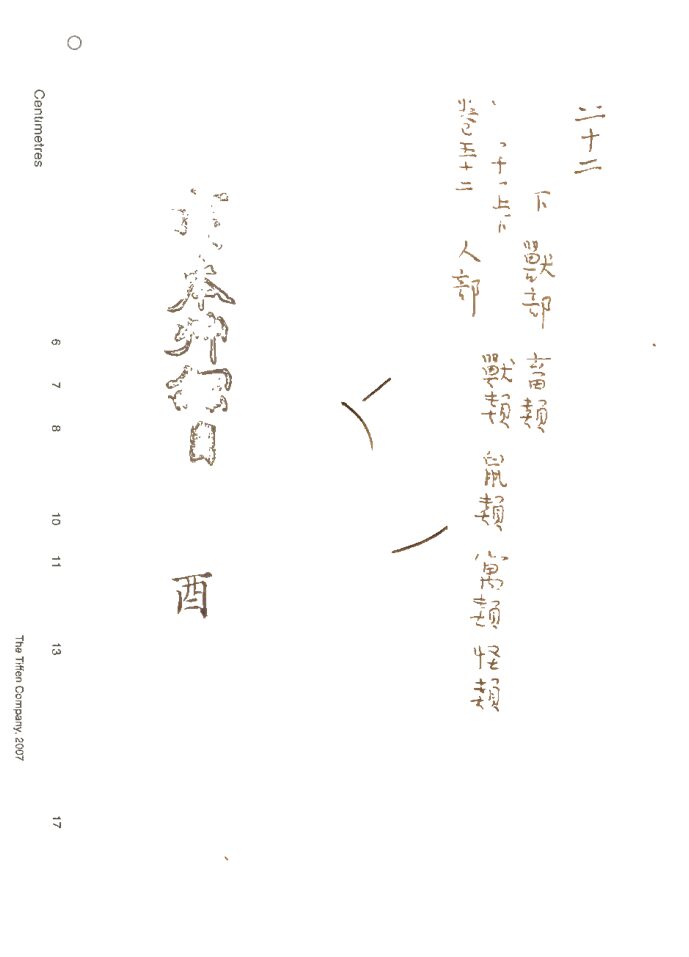 二十二
下 獸部 畜類
十一上下 獸類 鼠類 寓類 怪類
卷五十二 人部
本艸綱目 酉
Centimetres
6 7 8 10 11 13 17
The Tiffen Company, 2007